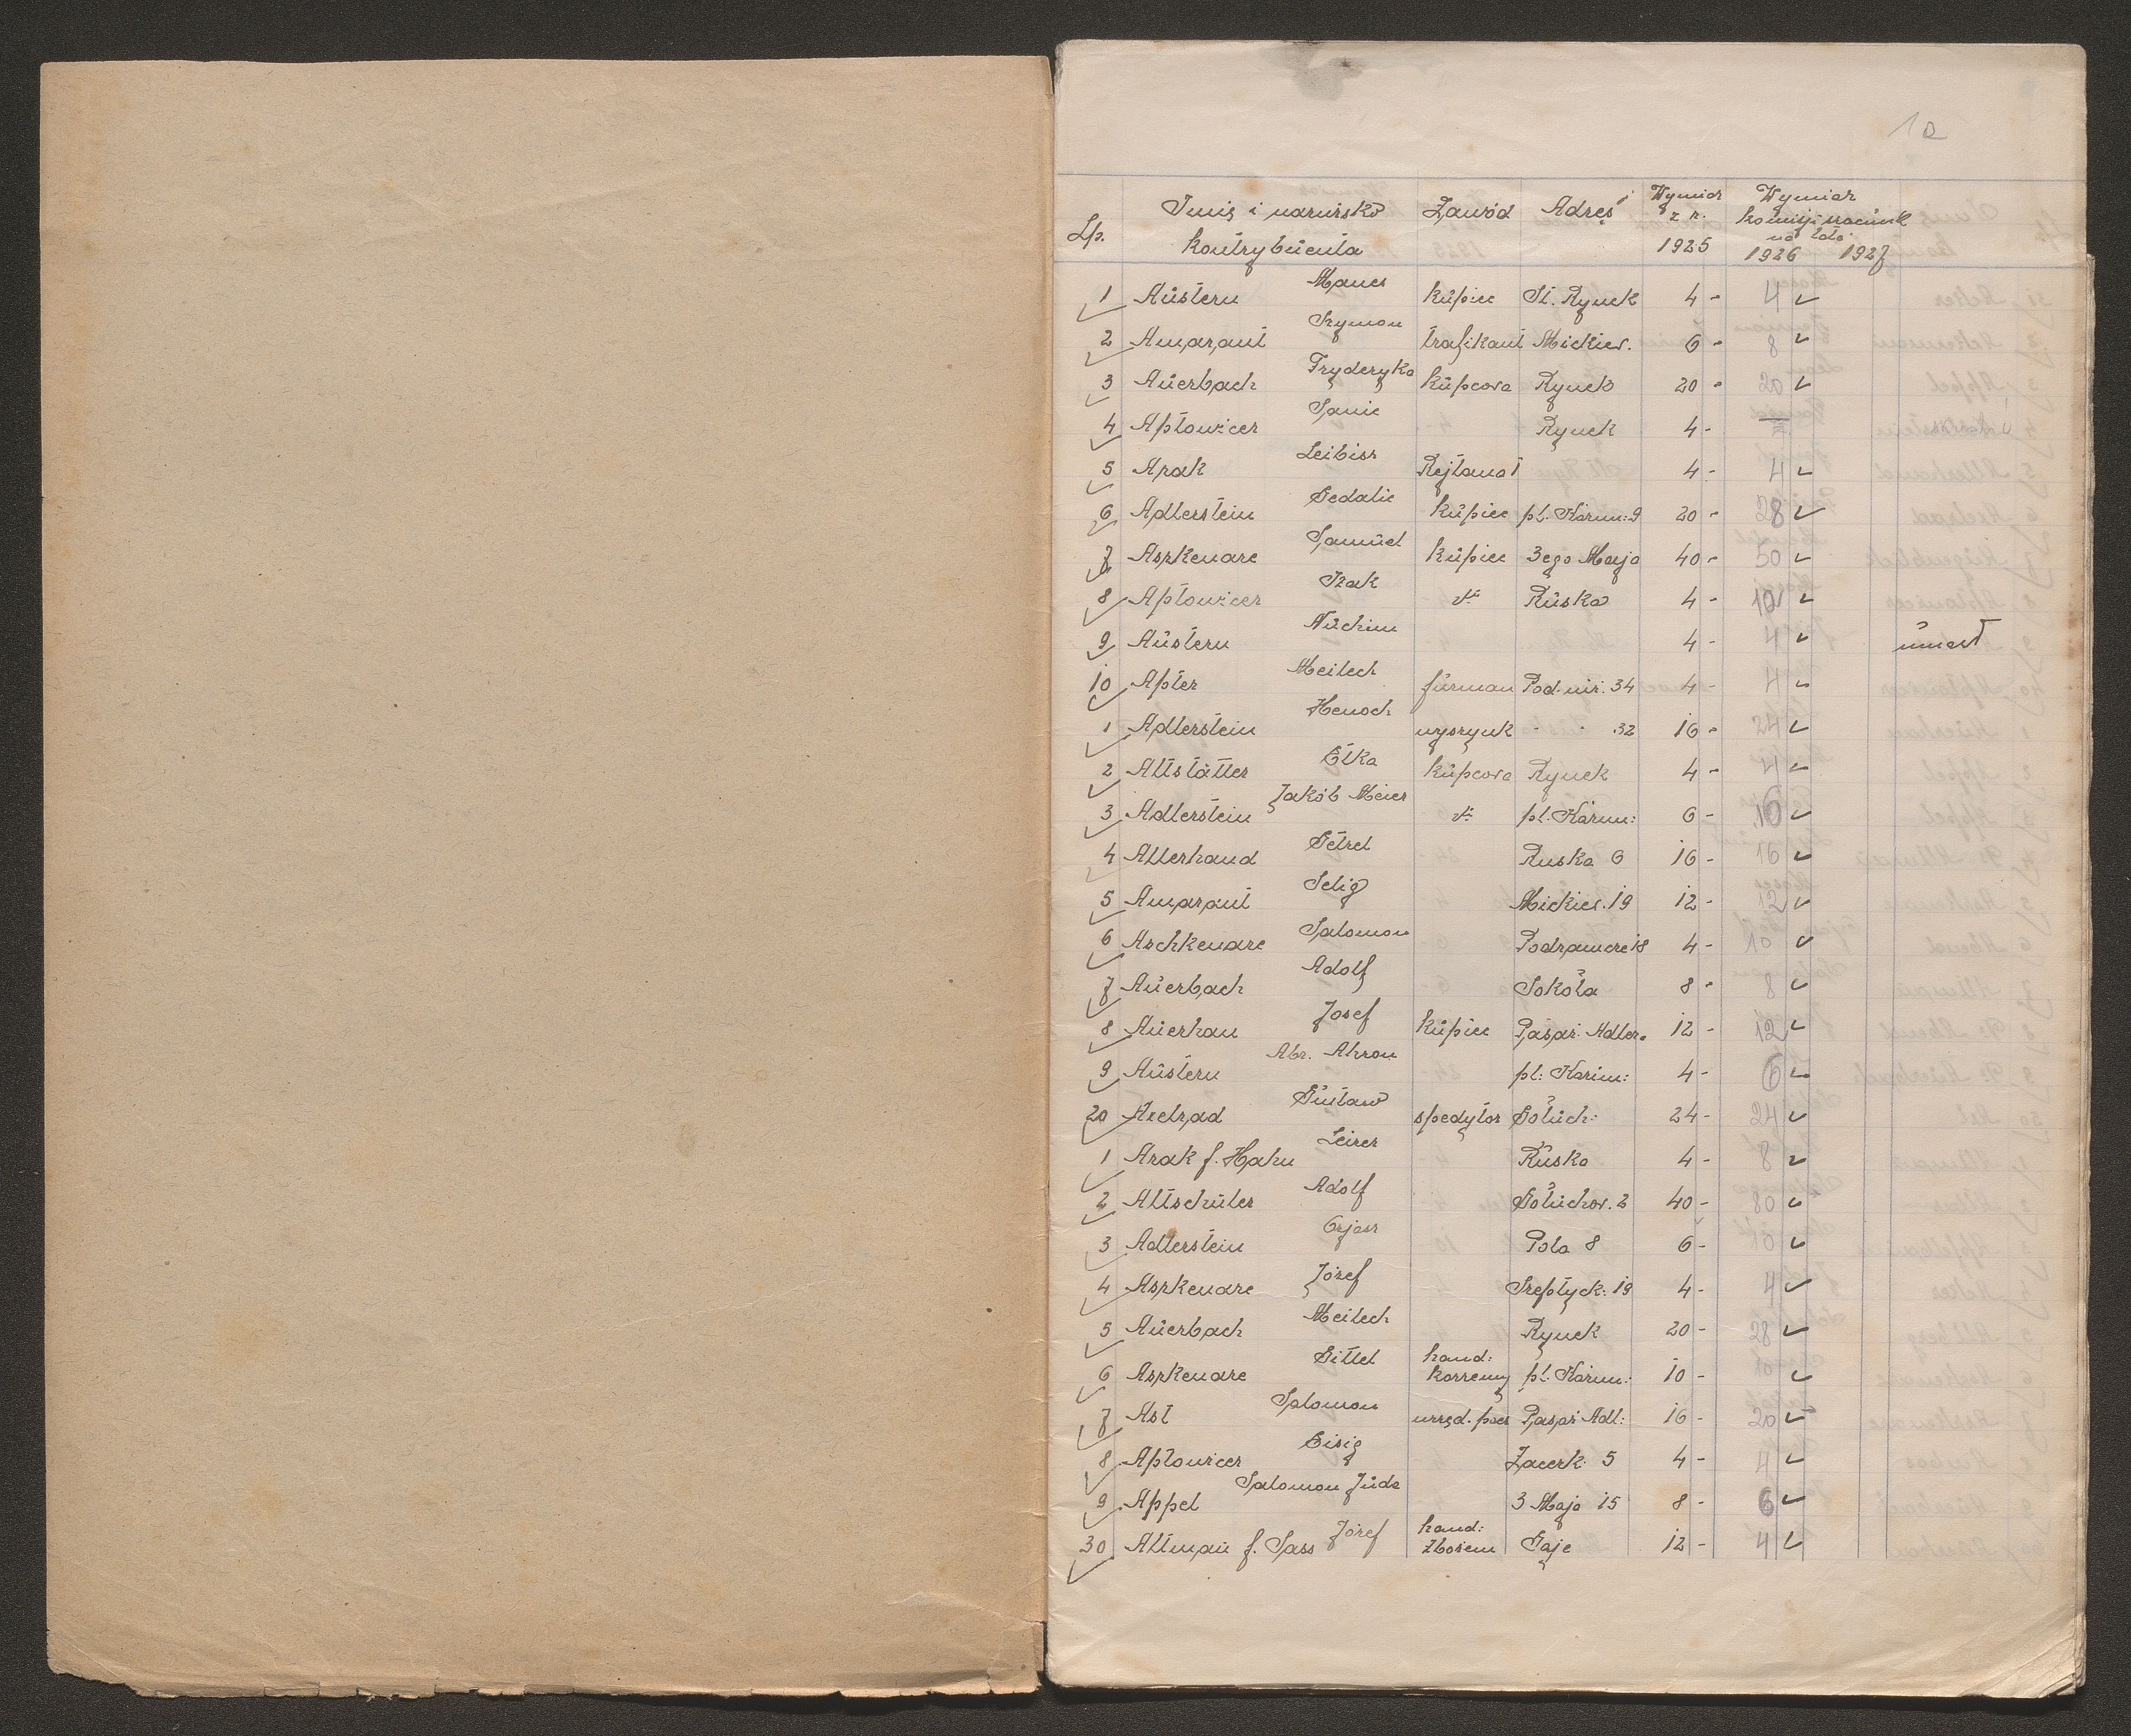 1a
Lp. Imię i nazwisko kontrybuenta Zawód Adres Wymiar z r. 1925 Wymiar komisji szacunk na lata 1926 1927
1 Austern Manes kupiec St. Rynek 4 - 4
2 Amarant Szymon trafikant Mickiew. 6 - 8
3 Auerbach Fryderyka kupcowa Rynek 20 - 20
4 Aptowicer Sanie Rynek 4 - —
5 Arak Leibisz Rejtana 1 4 - 4
6 Adlerstein Gedalie kupiec pl. Karm: 9 20 - 28
7 Aszkenaze Samuel kupiec 3ego Maja 40 - 50
8 Aptowicer Izak dt Ruska 4 - 10
9 Austern Nuchim 4 - 4 umarł
10 Apter Meilech furman Pod. 34 4 - 4
1 Adlerstein Henoch wyszynk 32 16 - 24
2 Altstätter Elka kupcowa Rynek 4 - 4
3 Adlerstein Jakób Meier dt pl. Karm: 6 - 10
4 Allerhand Getzel Ruska 6 16 - 16
5 Amarant Selig Mickiew. 19 12 - 12
6 Aschkenaze Salomon Podzamcze 18 4 - 10
7 Auerbach Adolf Sokoła 8 - 8
8 Auerhan Josef kupiec Pasaż. Adler. 12 - 12
9 Austern Abr. Ahron pl: Karm: 4 - 6
20 Axelrad Gustaw spedytor Gołuch: 24 - 24
1 Arak f. Hahn Leizer Ruska 4 - 8
2 Altschüler Adolf Gołuchow. 2 40 - 80
3 Adlerstein Ozjasz Pola 8 6 - 10
4 Aszkenaze Józef Szeptyck: 19 4 - 4
5 Auerbach Meilech Rynek 20 - 28
6 Aszkenaze Gittel hand: korzenny pl. Karm: 10 -
7 Ast Salomon urzęd. Pasaż Adl: 16 - 20
8 Aptowicer Eisig Zacerk. 5 4 - 4
9 Appel Salomon Juda 3 Maja 15 8 - 6
30 Altman f. Sass Józef hand: zbożem Gaje 12 - 4